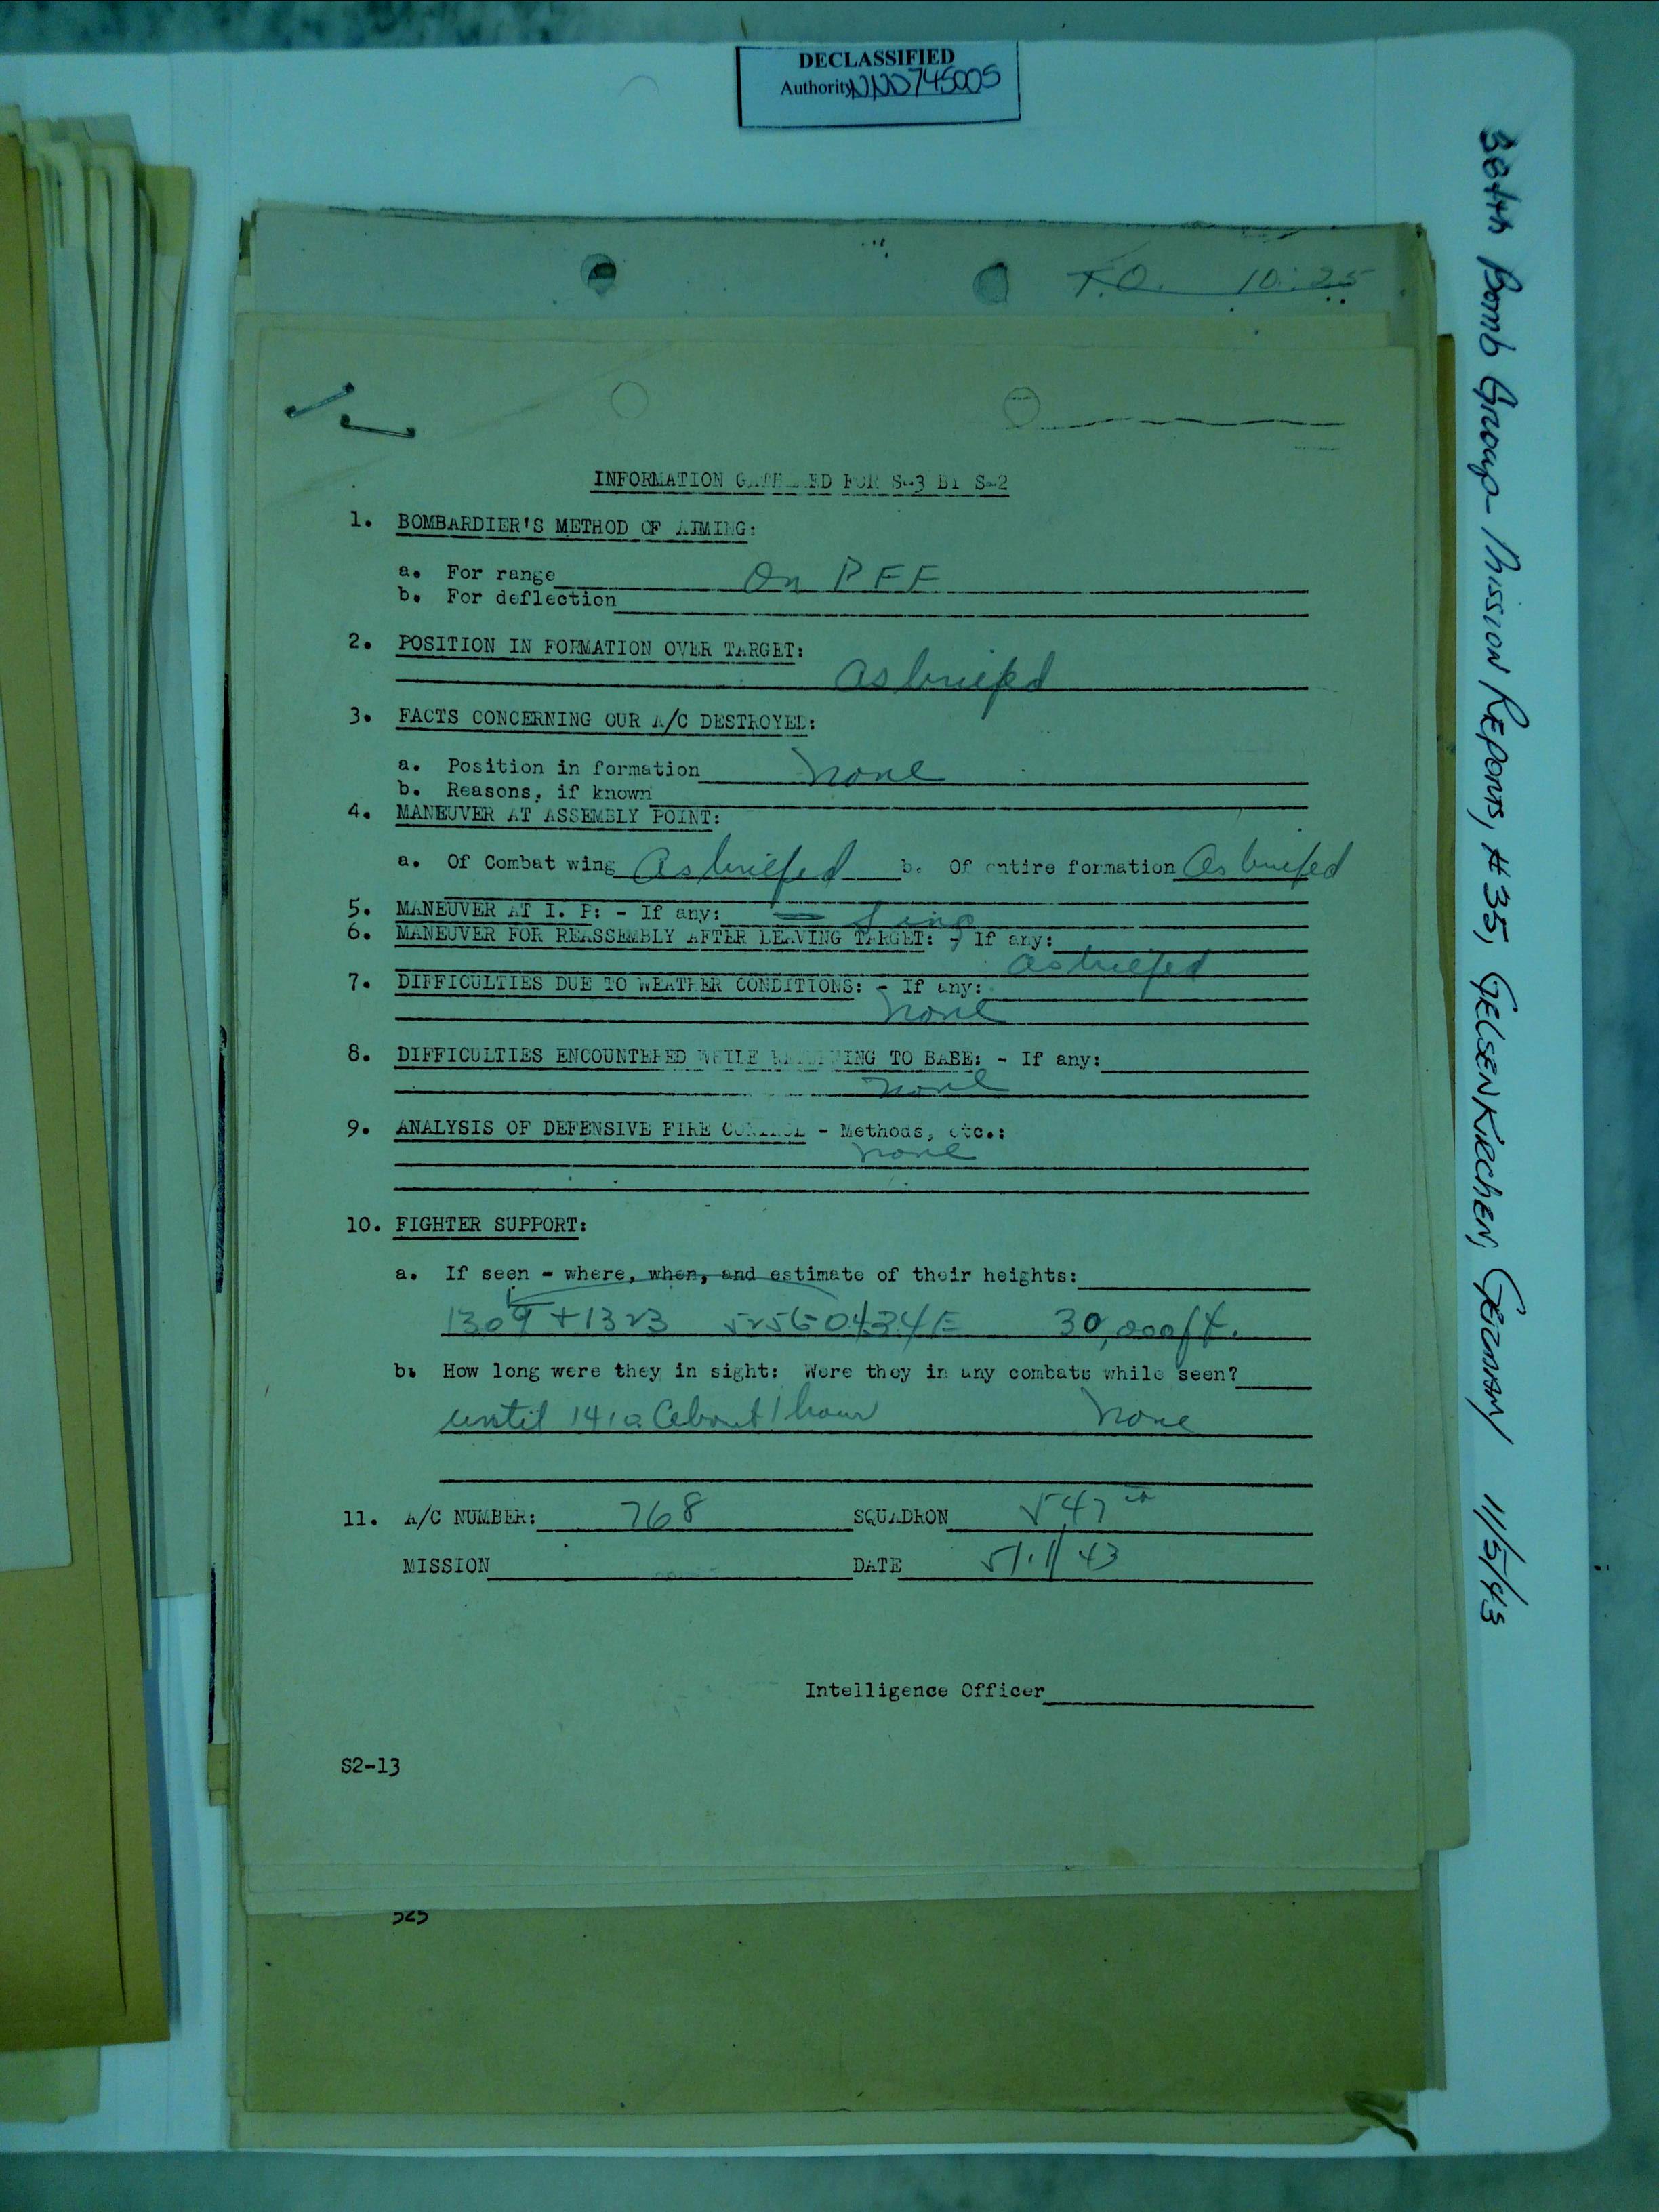 DECLASSIFIED
Authority NND745005
T.O. 10:25
INFORMATION GATHERED FOR S-3 BY S-2
1. BOMBARDIER'S METHOD OF AIMING:
a. For range On PFF
b. For deflection
2. POSITION IN FORMATION OVER TARGET:
as briefed
3. FACTS CONCERNING OUR A/C DESTROYED:
a. Position in formation none
b. Reasons, if known
4. MANEUVER AT ASSEMBLY POINT:
a. Of Combat wing As briefed b. Of entire formation As briefed
5. MANEUVER AT I. P: - If any:
6. MANEUVER FOR REASSEMBLY AFTER LEAVING TARGET: - If any:
as briefed
7. DIFFICULTIES DUE TO WEATHER CONDITIONS: - If any:
none
8. DIFFICULTIES ENCOUNTERED WHILE RETURNING TO BASE: - If any:
none
9. ANALYSIS OF DEFENSIVE FIRE CONTROL - Methods, etc.:
none
10. FIGHTER SUPPORT:
a. If seen - where, when, and estimate of their heights:
1309 + 1323 5256 0434E 30,000 ft.
b. How long were they in sight: Were they in any combats while seen?
until 1410 About 1 hour none
11. A/C NUMBER: 768 SQUADRON 547th
MISSION DATE 5/11/43
Intelligence Officer
S2-13
384th Bomb Group Mission Reports, #35, Gelsenkirchen, Germany 11/5/43